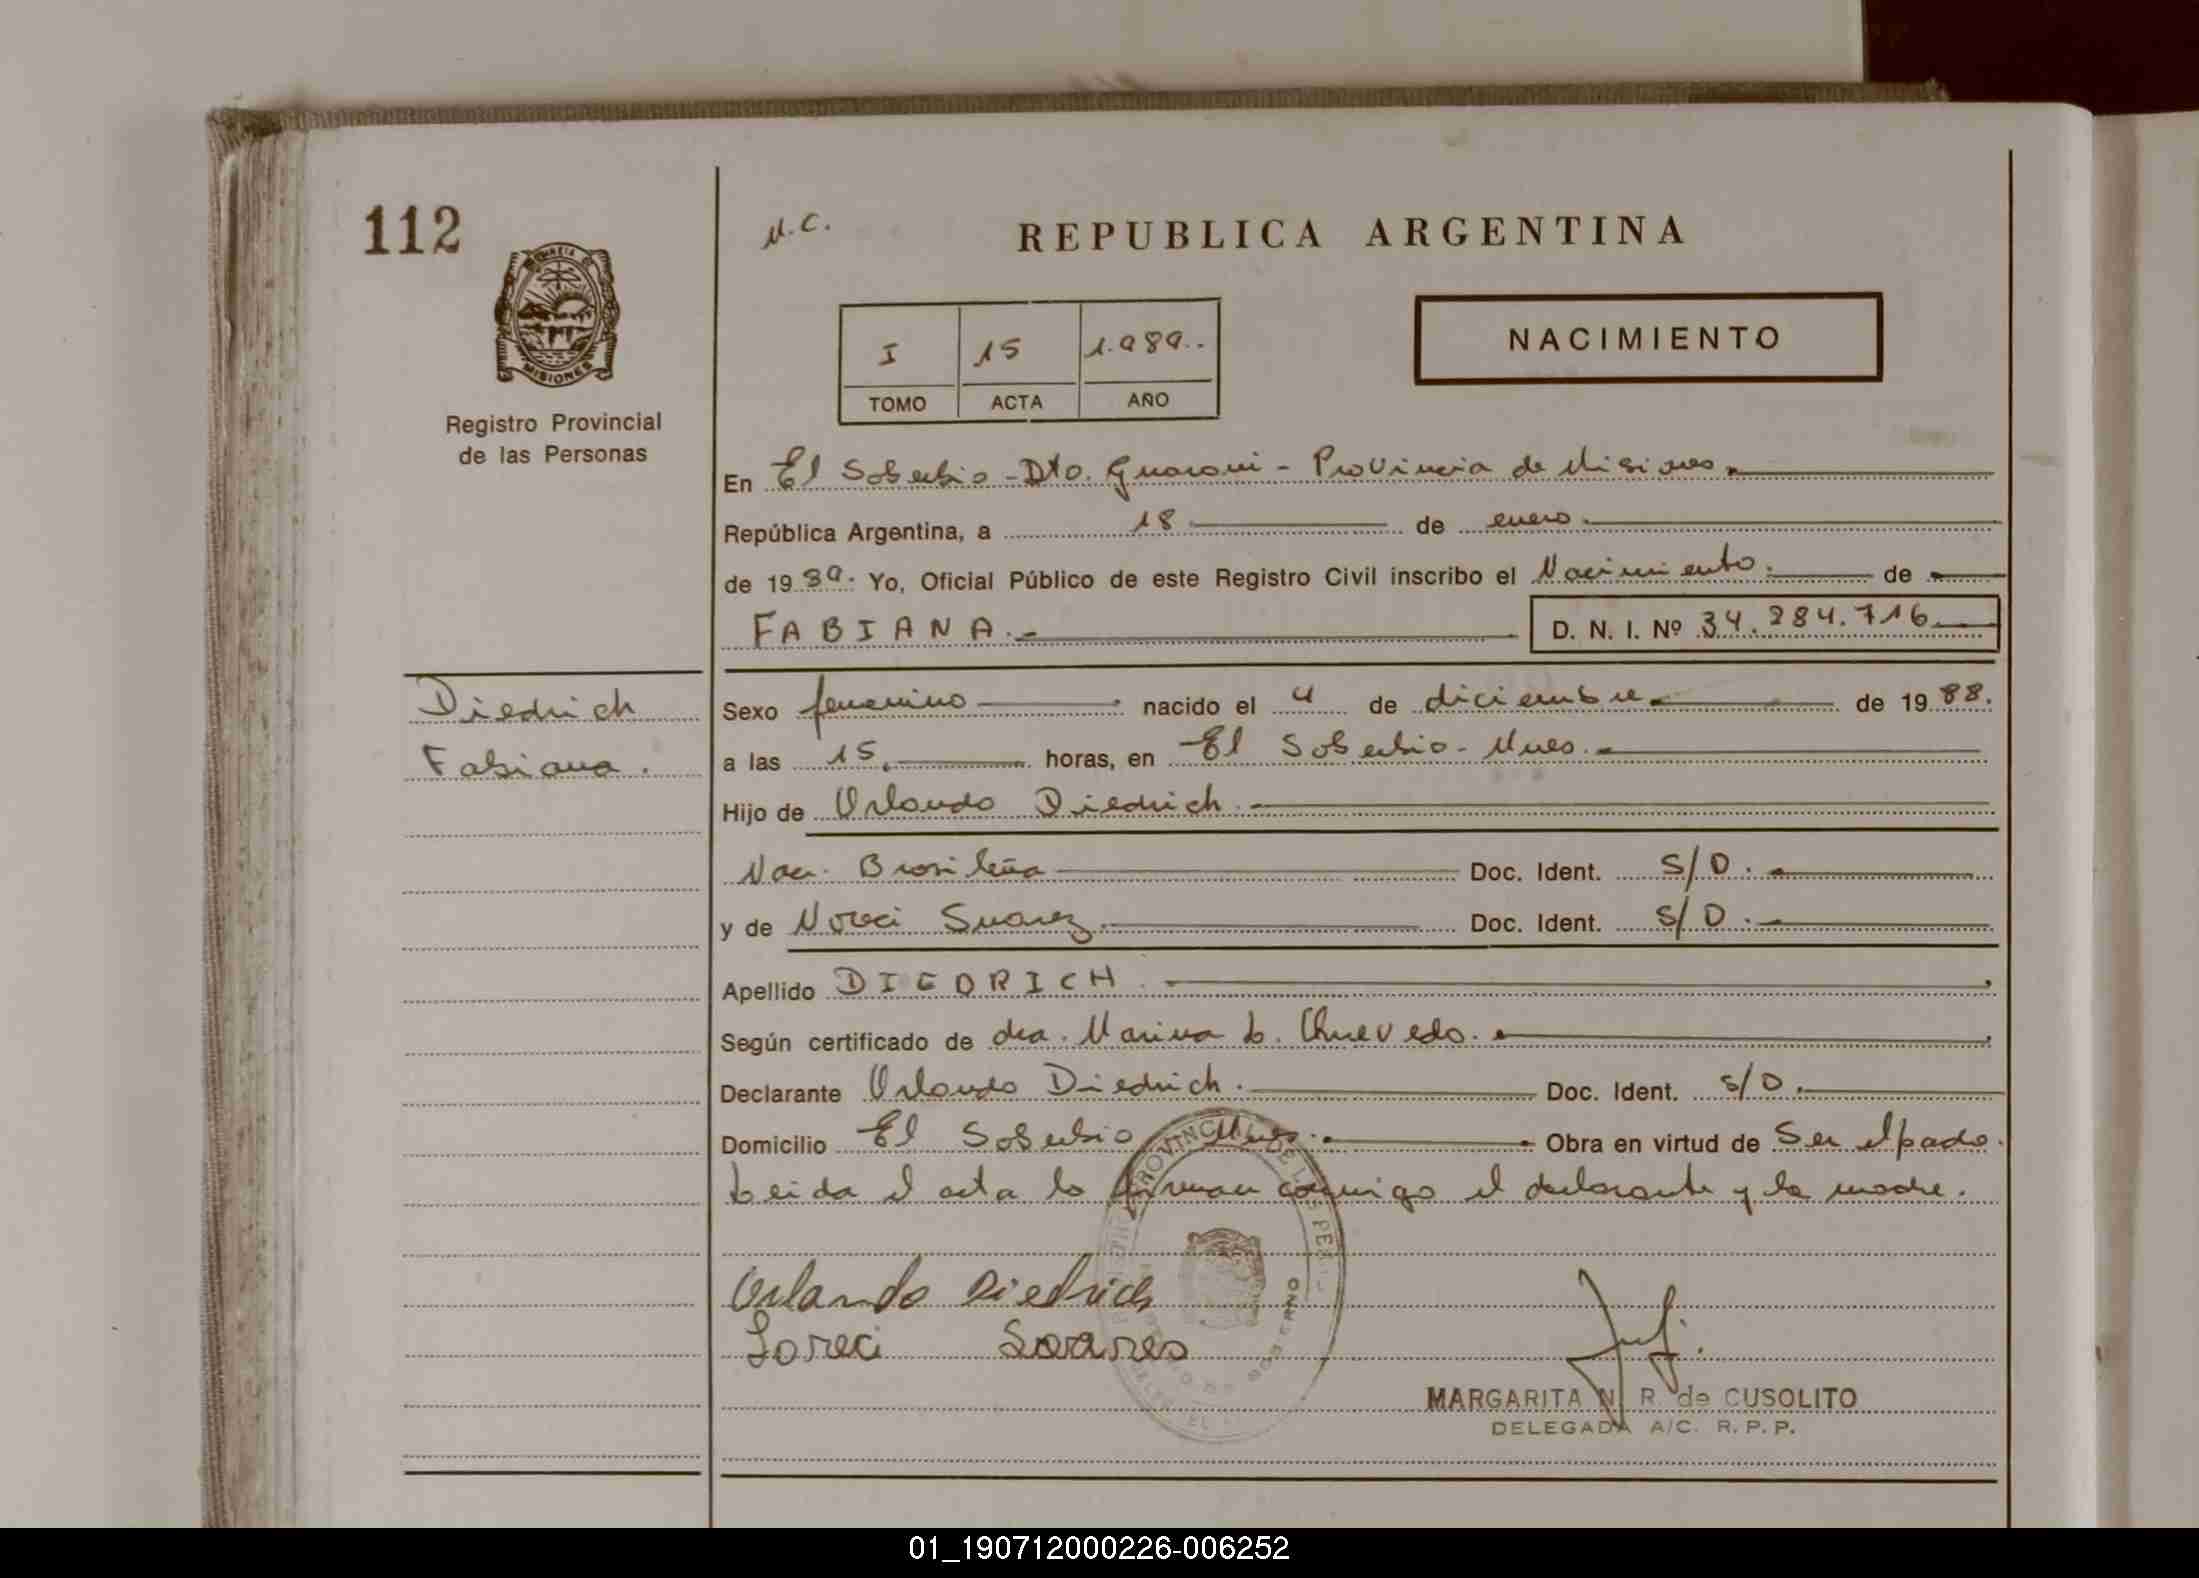 112
N.C.
REPUBLICA ARGENTINA
MISIONES
Registro Provincial
de las Personas
I 15 1.989.
TOMO ACTA AÑO
NACIMIENTO
En El Soberbio - Dto. Guarani - Provincia de Misiones.
República Argentina, a 18 de enero.
de 1989. Yo, Oficial Público de este Registro Civil inscribo el Nacimiento. de
FABIANA. D. N. I. Nº 34.284.716
Diedrich
Fabiana.
Sexo femenino nacido el 4 de diciembre de 1988.
a las 15. horas, en El Soberbio - Mnes.
Hijo de Orlando Diedrich.
Nac. Brasileña Doc. Ident. S/D.
y de Noreci Suarez. Doc. Ident. S/D.
Apellido DIEDRICH.
Según certificado de dra. Marina L. Quevedo.
Declarante Orlando Diedrich. Doc. Ident. S/D.
Domicilio El Soberbio Mnes. Obra en virtud de Ser el padre.
Leida el acta la firman conmigo el declarante y la madre.
Orlando Diedrich
Loreci Soares
MARGARITA N. R. de CUSOLITO
DELEGADA A/C. R. P. P.
01_190712000226-006252